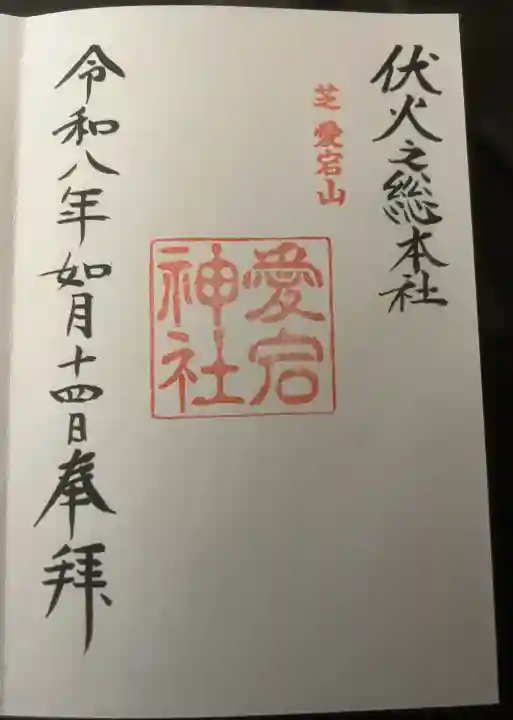 伏火之総本社
芝愛宕山
愛宕
神社
令和八年如月十四日奉拝